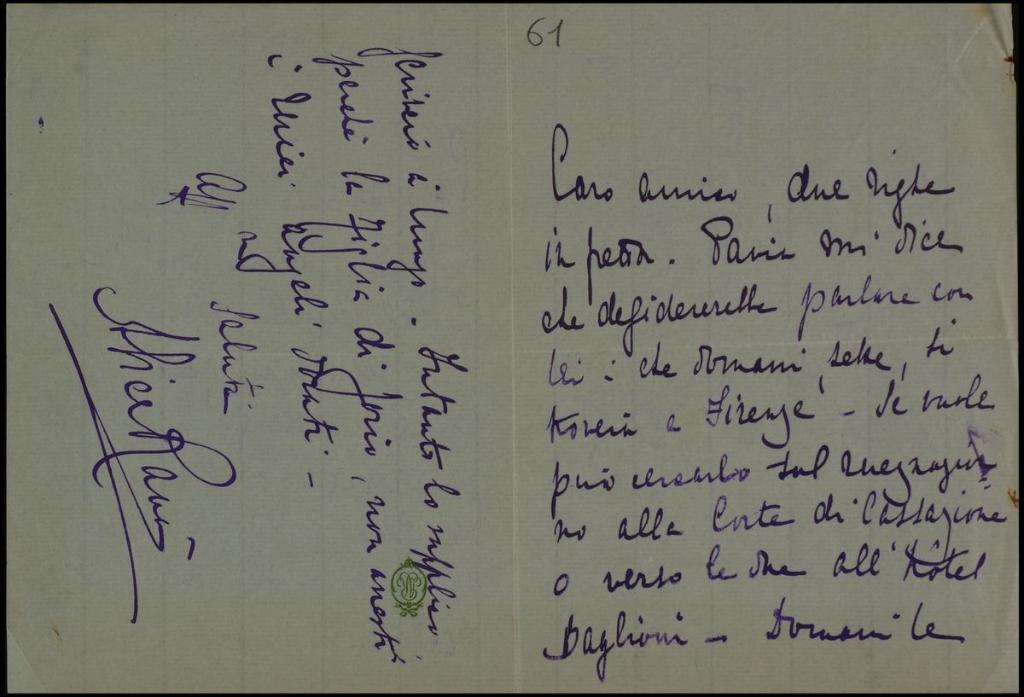 61
Caro amico, due righe
in fretta. Pavia mi dice
che desidererebbe parlare con
lei: che domani, sette, si
troverà a Firenze - Se vuole
può cercarlo sul mezzogior-
no alla Corte di Cassazione
o verso le due all'Hôtel
Baglioni - Domani le
scriverò a lungo. Intanto la supplico
perché la figlia di Jorio, non arresti
i miei Angeli
aff saluti